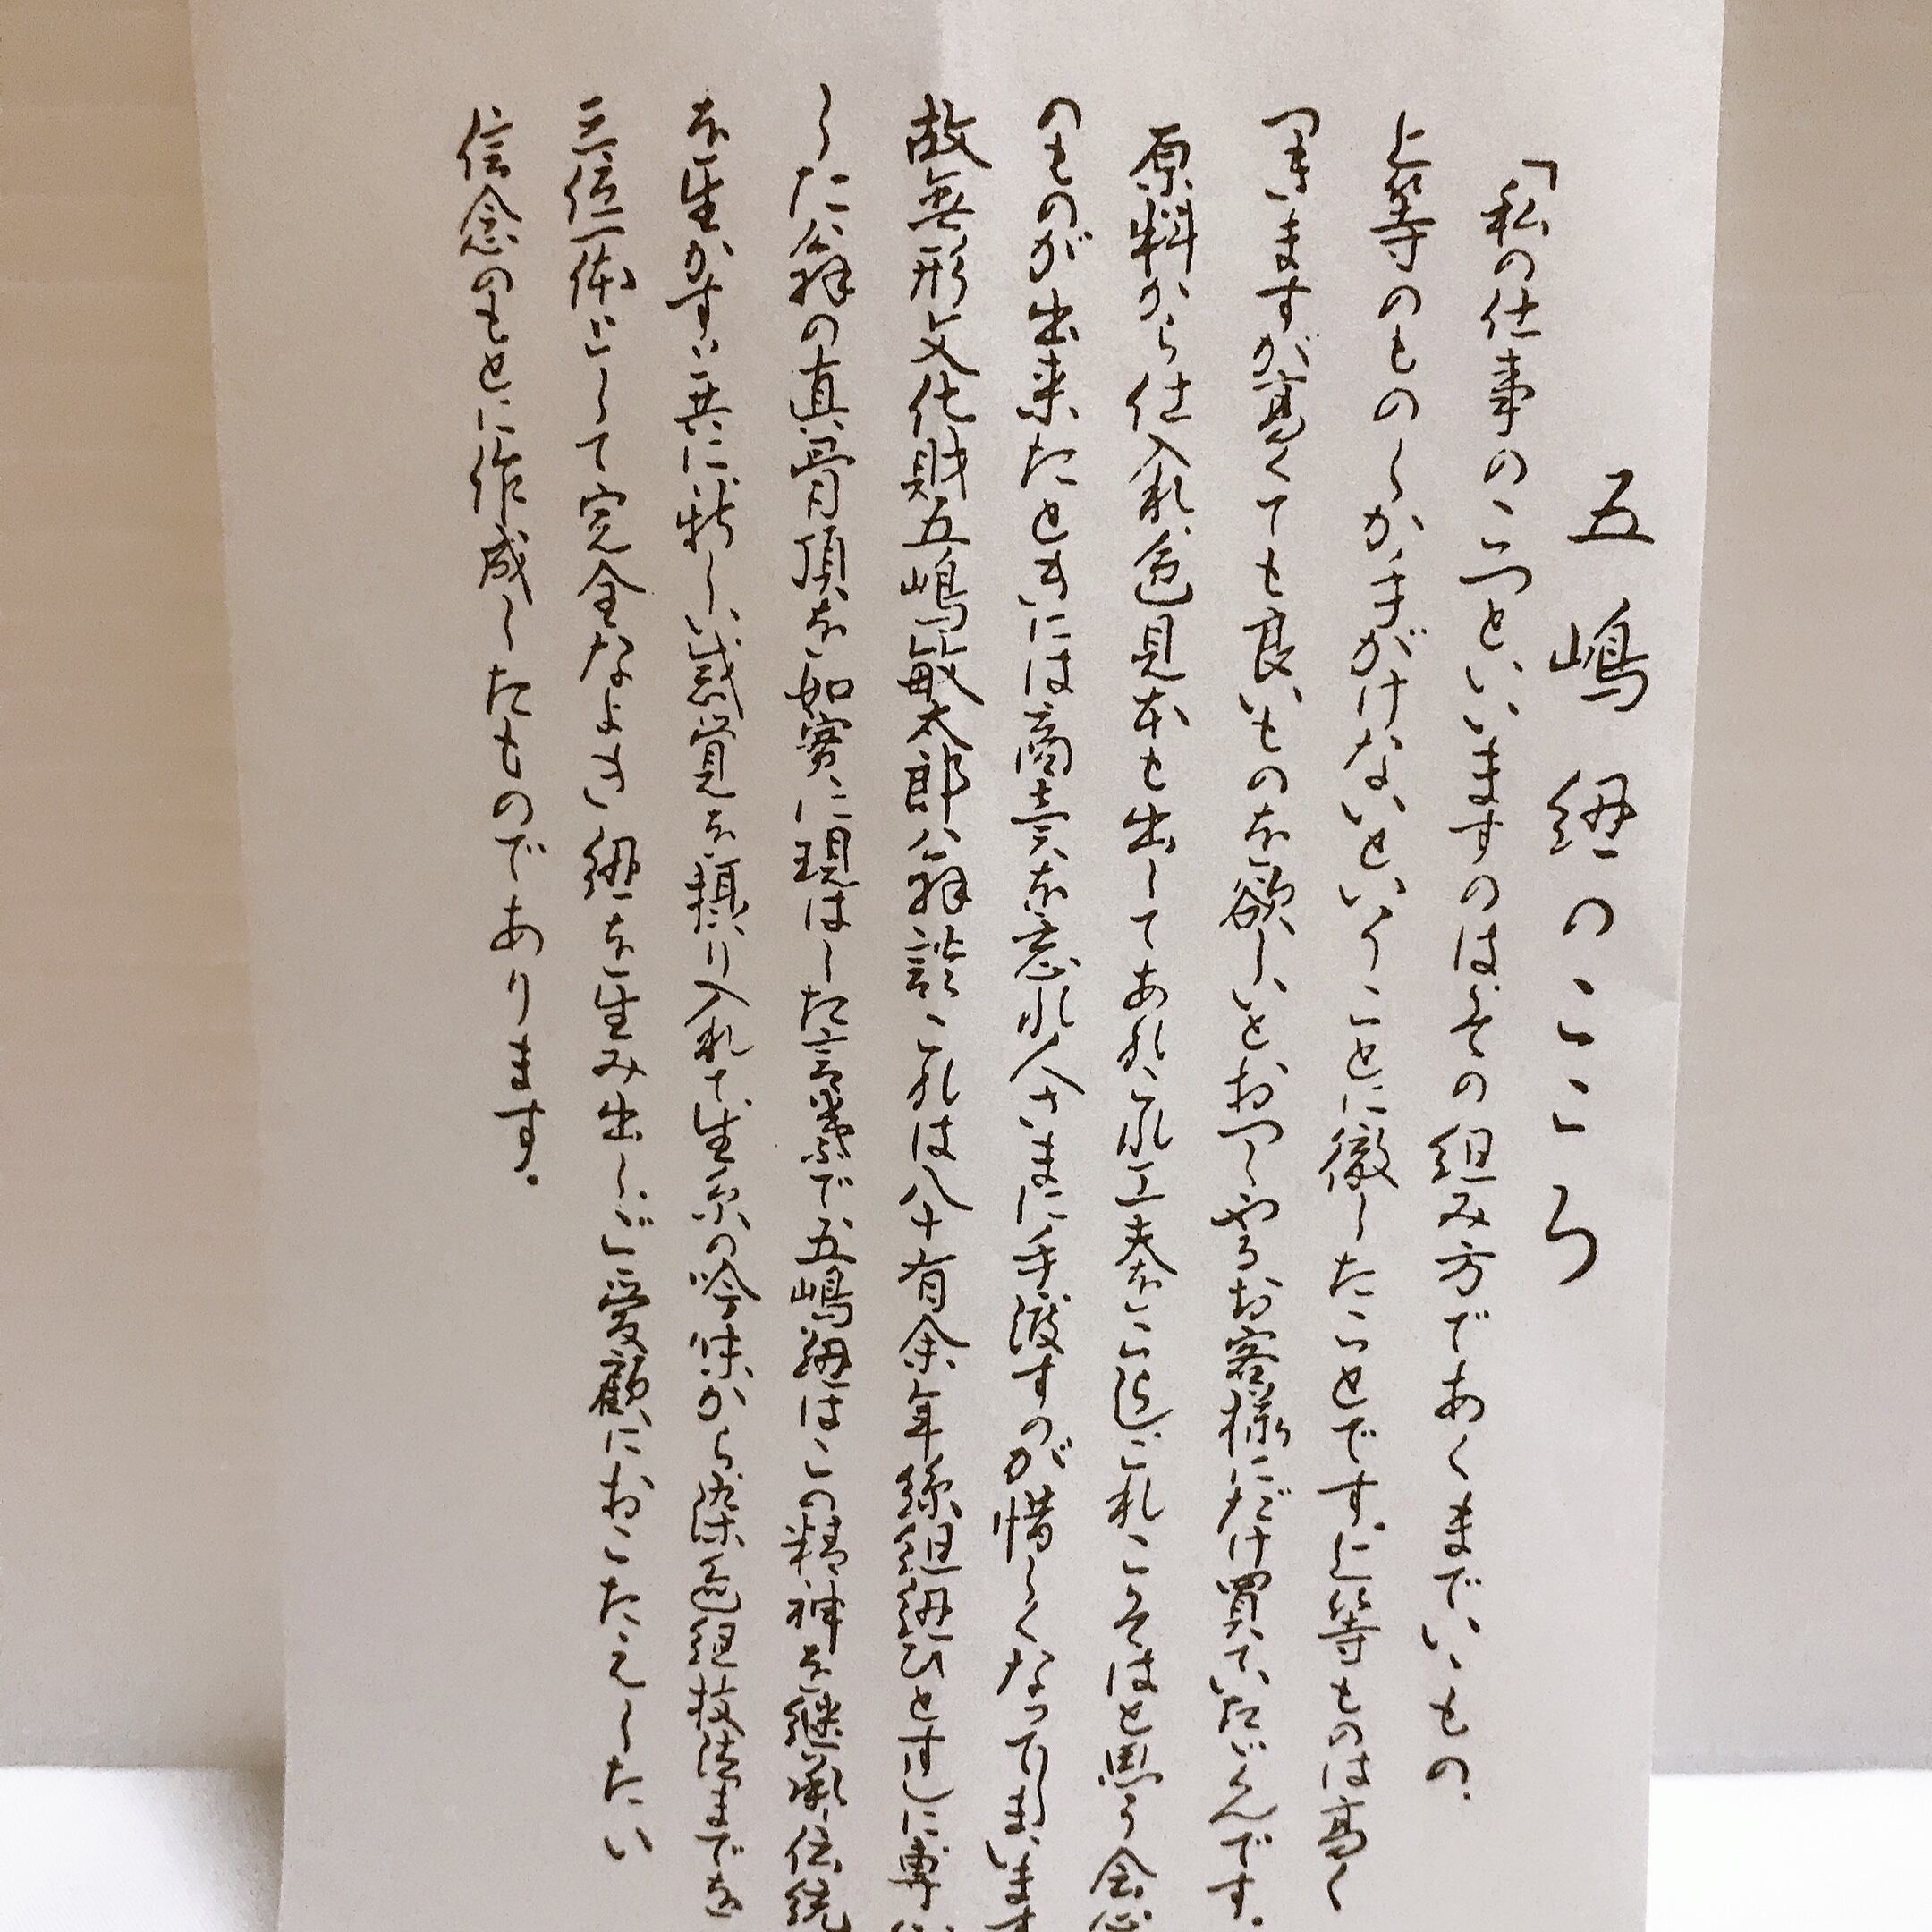 五嶋紐のこころ
「私の仕事のこつといいますのは、その組み方であくまでいいもの、
上等のものしか手がけないということに徹したことです。上等ものは高く
つきますが、高くても良いものを欲しいとおっしゃるお客様にだけ買ていたゞくんです。
原料から仕入れ、色見本も出してあれこれ工夫をこらし、これこそはと思う会心
のものが出来たときには商売を忘れ人さまに手渡すのが惜しくなってしまいます
故無形文化財五嶋敏太郎公翁談 これは八十有余年絲組紐ひとすじに専心
した公翁の真骨頂を如実に現はした言葉で、五嶋紐はこの精神を継承、伝統
を生かすと共に新しい感覚を摂り入れて、生糸の吟味から染色組技法までを
三位一体にして完全なよき紐を生み出し、ご愛顧におこたえしたい
信念のもとに作成したものであります。